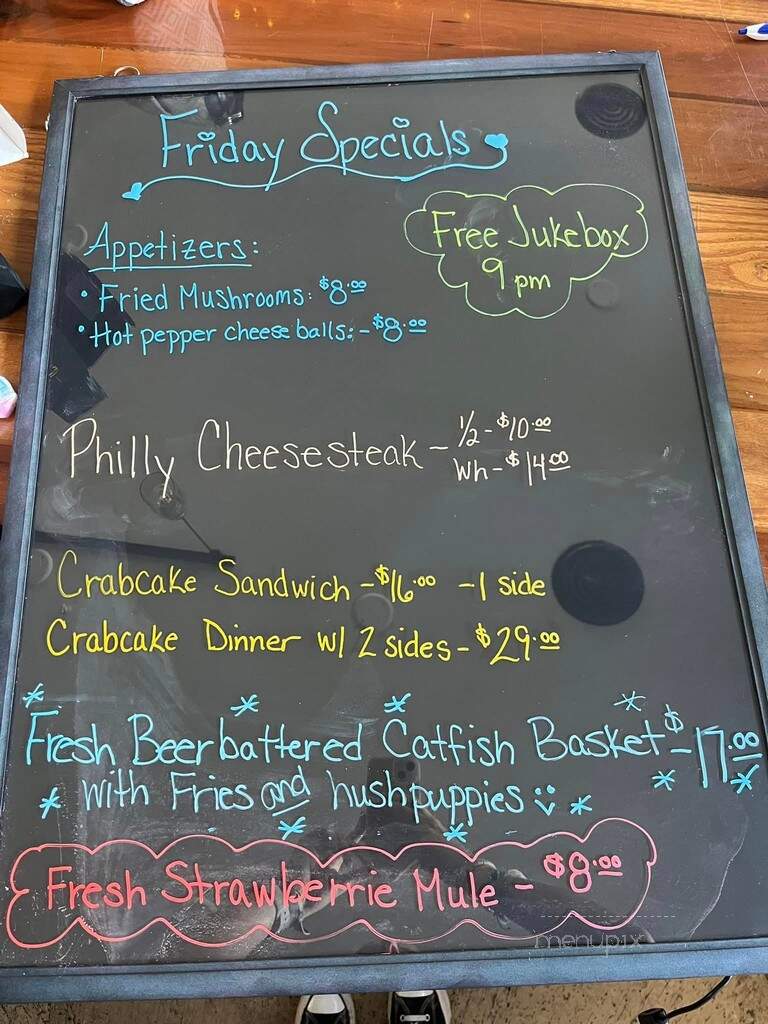 Friday Specials
Free Jukebox
9 pm
Appetizers:
• Fried Mushrooms: $8.00
• Hot pepper cheese balls: - $8.00
Philly Cheesesteak - 1/2 - $10.00
Wh - $14.00
Crabcake Sandwich - $16.00 - 1 side
Crabcake Dinner w/ 2 sides - $29.00
Fresh Beerbattered Catfish Basket - $17.00
with Fries and hushpuppies :)
Fresh Strawberrie Mule - $8.00
menupix